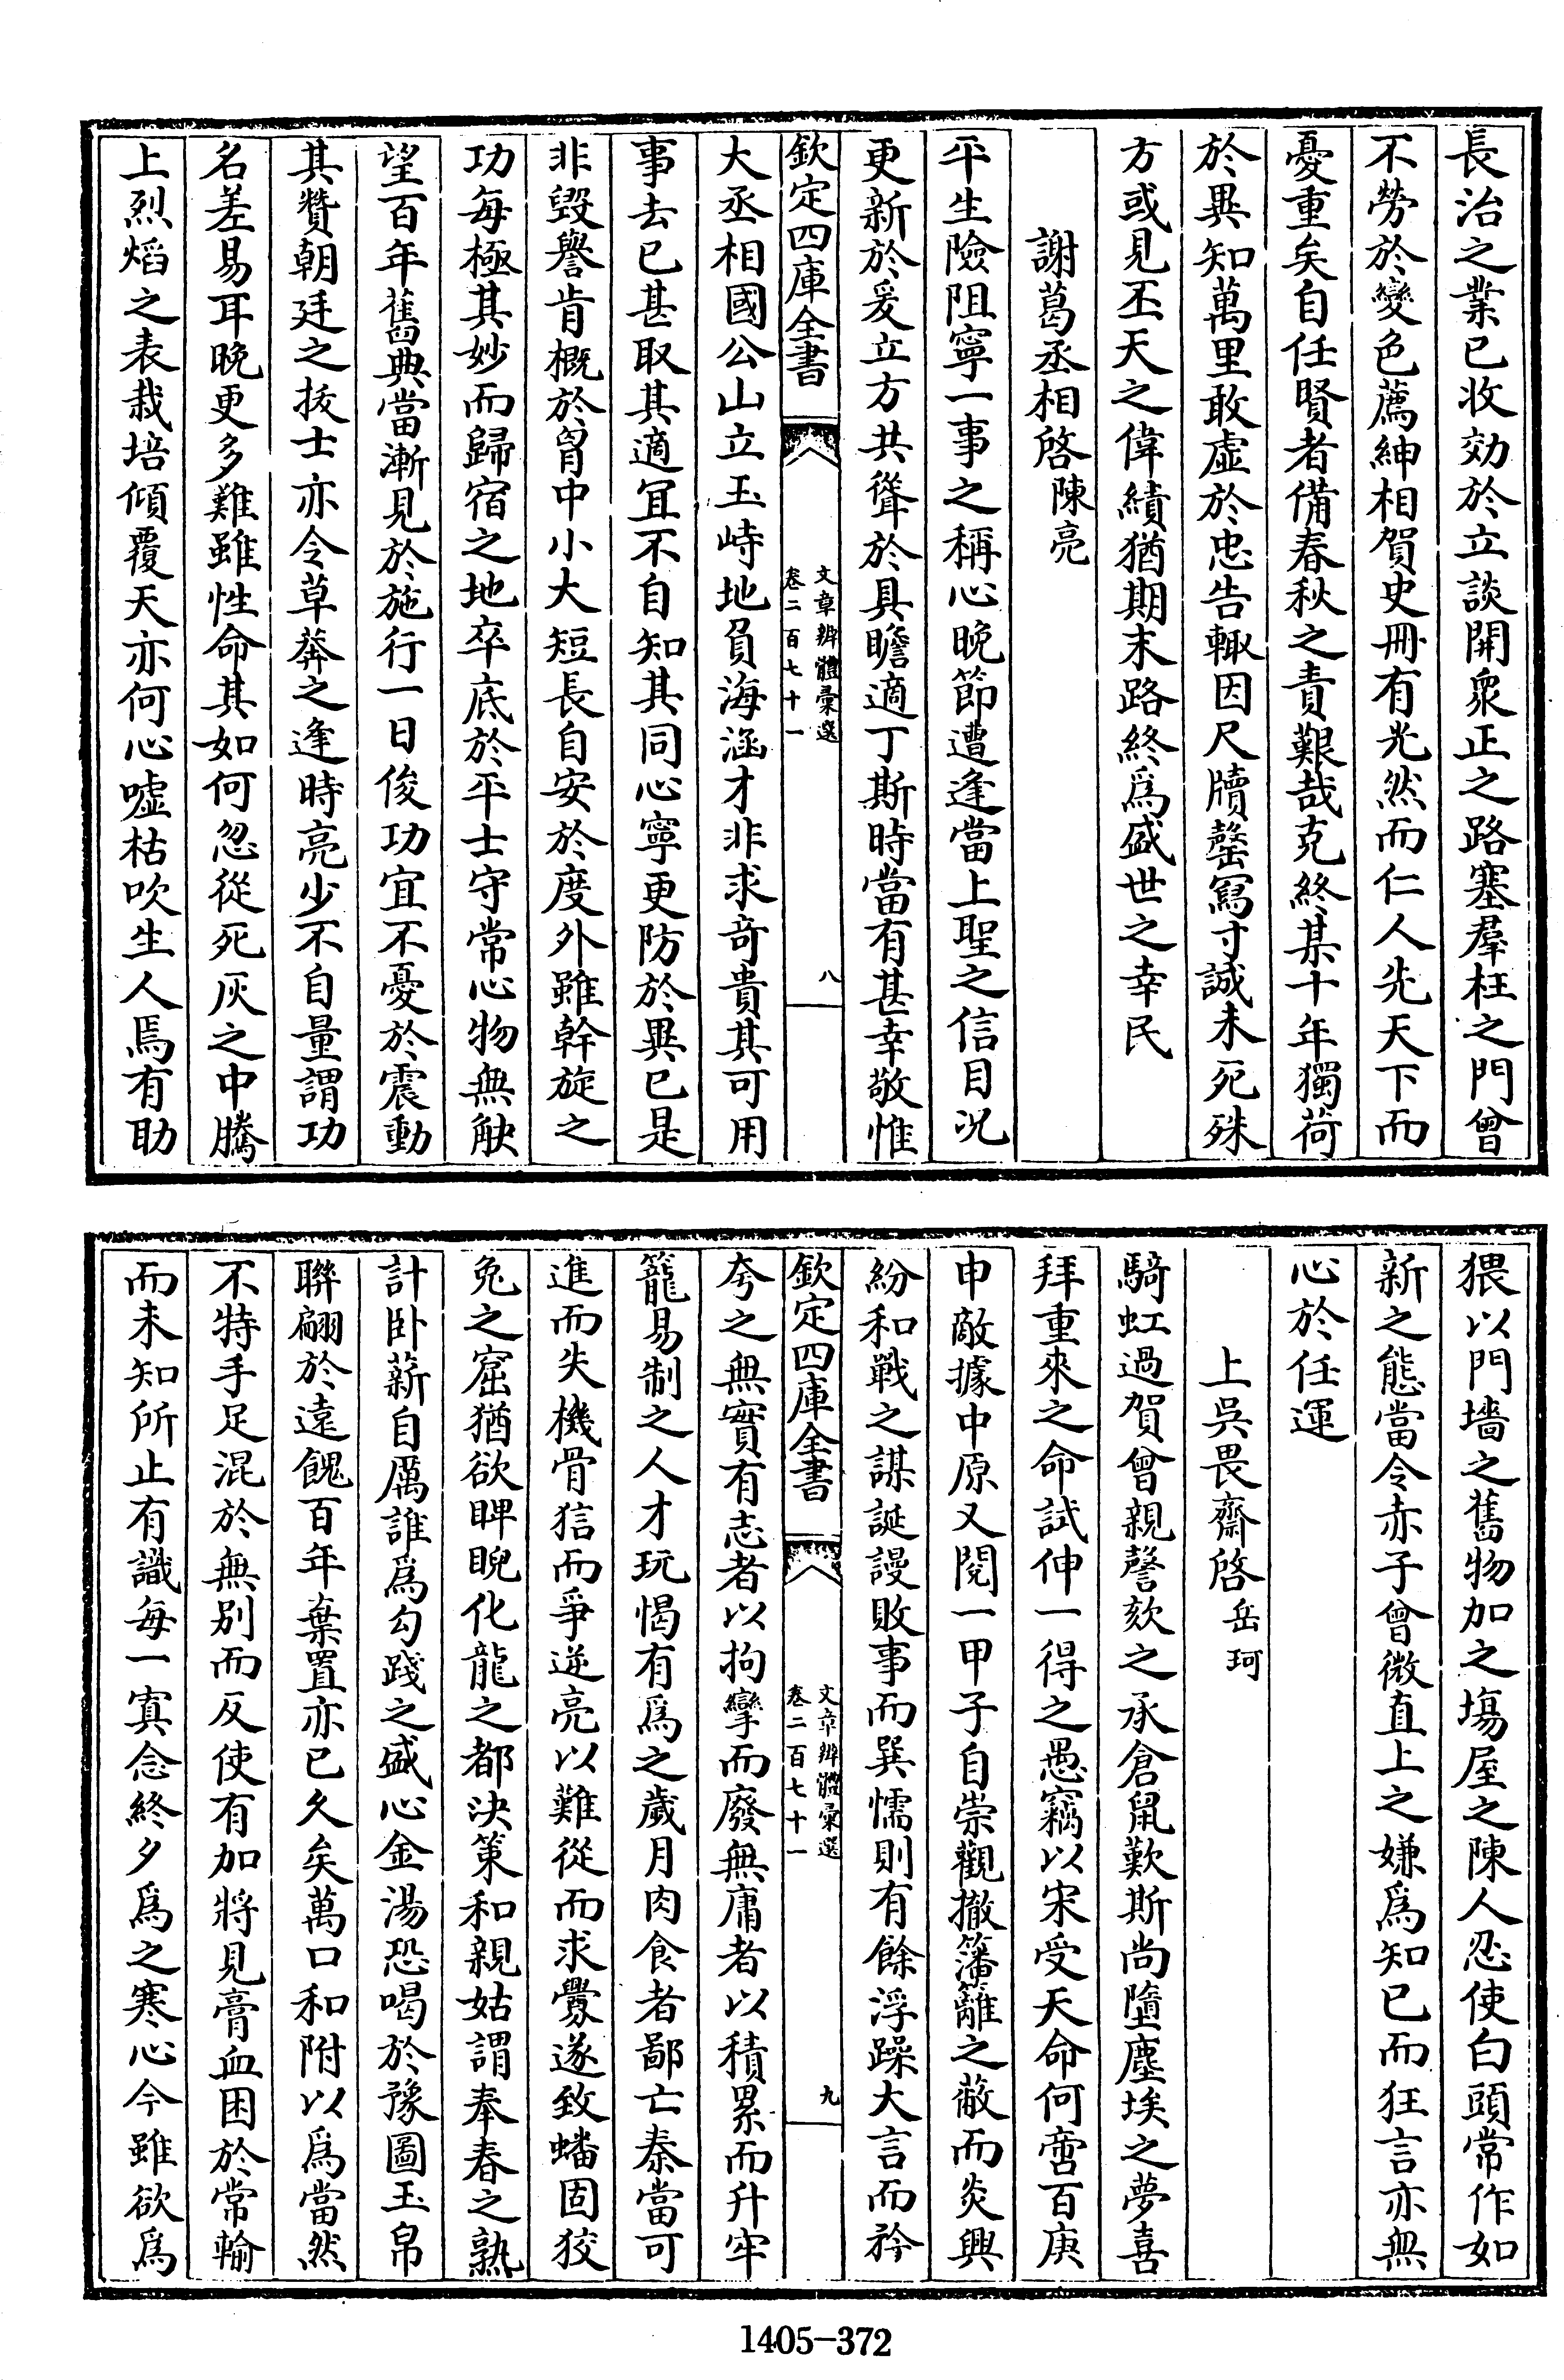 長治之業已收効於立談開衆正之路塞羣枉之門曾
不勞於變色薦紳相賀史冊有光然而仁人先天下而
憂重矣自任賢者備春秋之責艱哉克終某十年獨荷
於異知萬里敢虛於忠告輙因尺牘罄寫寸誠未死殊
方或見丕天之偉績猶期末路終爲盛世之幸民
謝葛丞相啓陳亮
平生險阻寧一事之稱心晚節遭逢當上聖之信目况
更新於爰立方共聳於具瞻適丁斯時當有甚幸敬惟
欽定四庫全書
文章辨體彙選
卷二百七十一
八
大丞相國公山立玉峙地負海涵才非求竒貴其可用
事去已甚取其適冝不自知其同心寧更防於異已是
非毀譽肯概於胷中小大短長自安於度外雖幹旋之
功每極其妙而歸宿之地卒底於平士守常心物無觖
望百年舊典當漸見於施行一日俊功宜不憂於震動
其贊朝廷之拔士亦令草莽之逢時亮少不自量謂功
名差易耳晚更多難雖性命其如何忽從死灰之中騰
上烈熖之表栽培傾覆天亦何心嘘枯吹生人焉有助
猥以門墻之舊物加之塲屋之陳人忍使白頭常作如
新之態當令赤子曾微直上之嫌爲知已而狂言亦無
心於任運
上吳畏齋啓岳珂
騎虹過賀曾親謦欬之承倉鼠歎斯尚墮塵埃之夢喜
拜重來之命試伸一得之愚竊以宋受天命何啻百庚
申敵據中原又閱一甲子自崇觀撤籓籬之蔽而炎興
紛和戰之謀誕謾敗事而巽懦則有餘浮躁大言而矜
欽定四庫全書
文章辨體彙選
卷二百七十一
九
夸之無實有志者以拘攣而廢無庸者以積累而升牢
籠易制之人才玩愒有爲之歲月肉食者鄙亡秦當可
進而失機骨猖而爭逆亮以難從而求釁遂致蟠固狡
兔之窟猶欲睥睨化龍之都決策和親姑謂奉春之熟
計卧薪自厲誰爲勾踐之盛心金湯恐喝於豫圖玉帛
聯翩於遠餽百年棄置亦已久矣萬口和附以爲當然
不特手足混於無别而反使有加將見膏血困於常輸
而未知所止有識每一寘念終夕爲之寒心今雖欲爲
1405-372